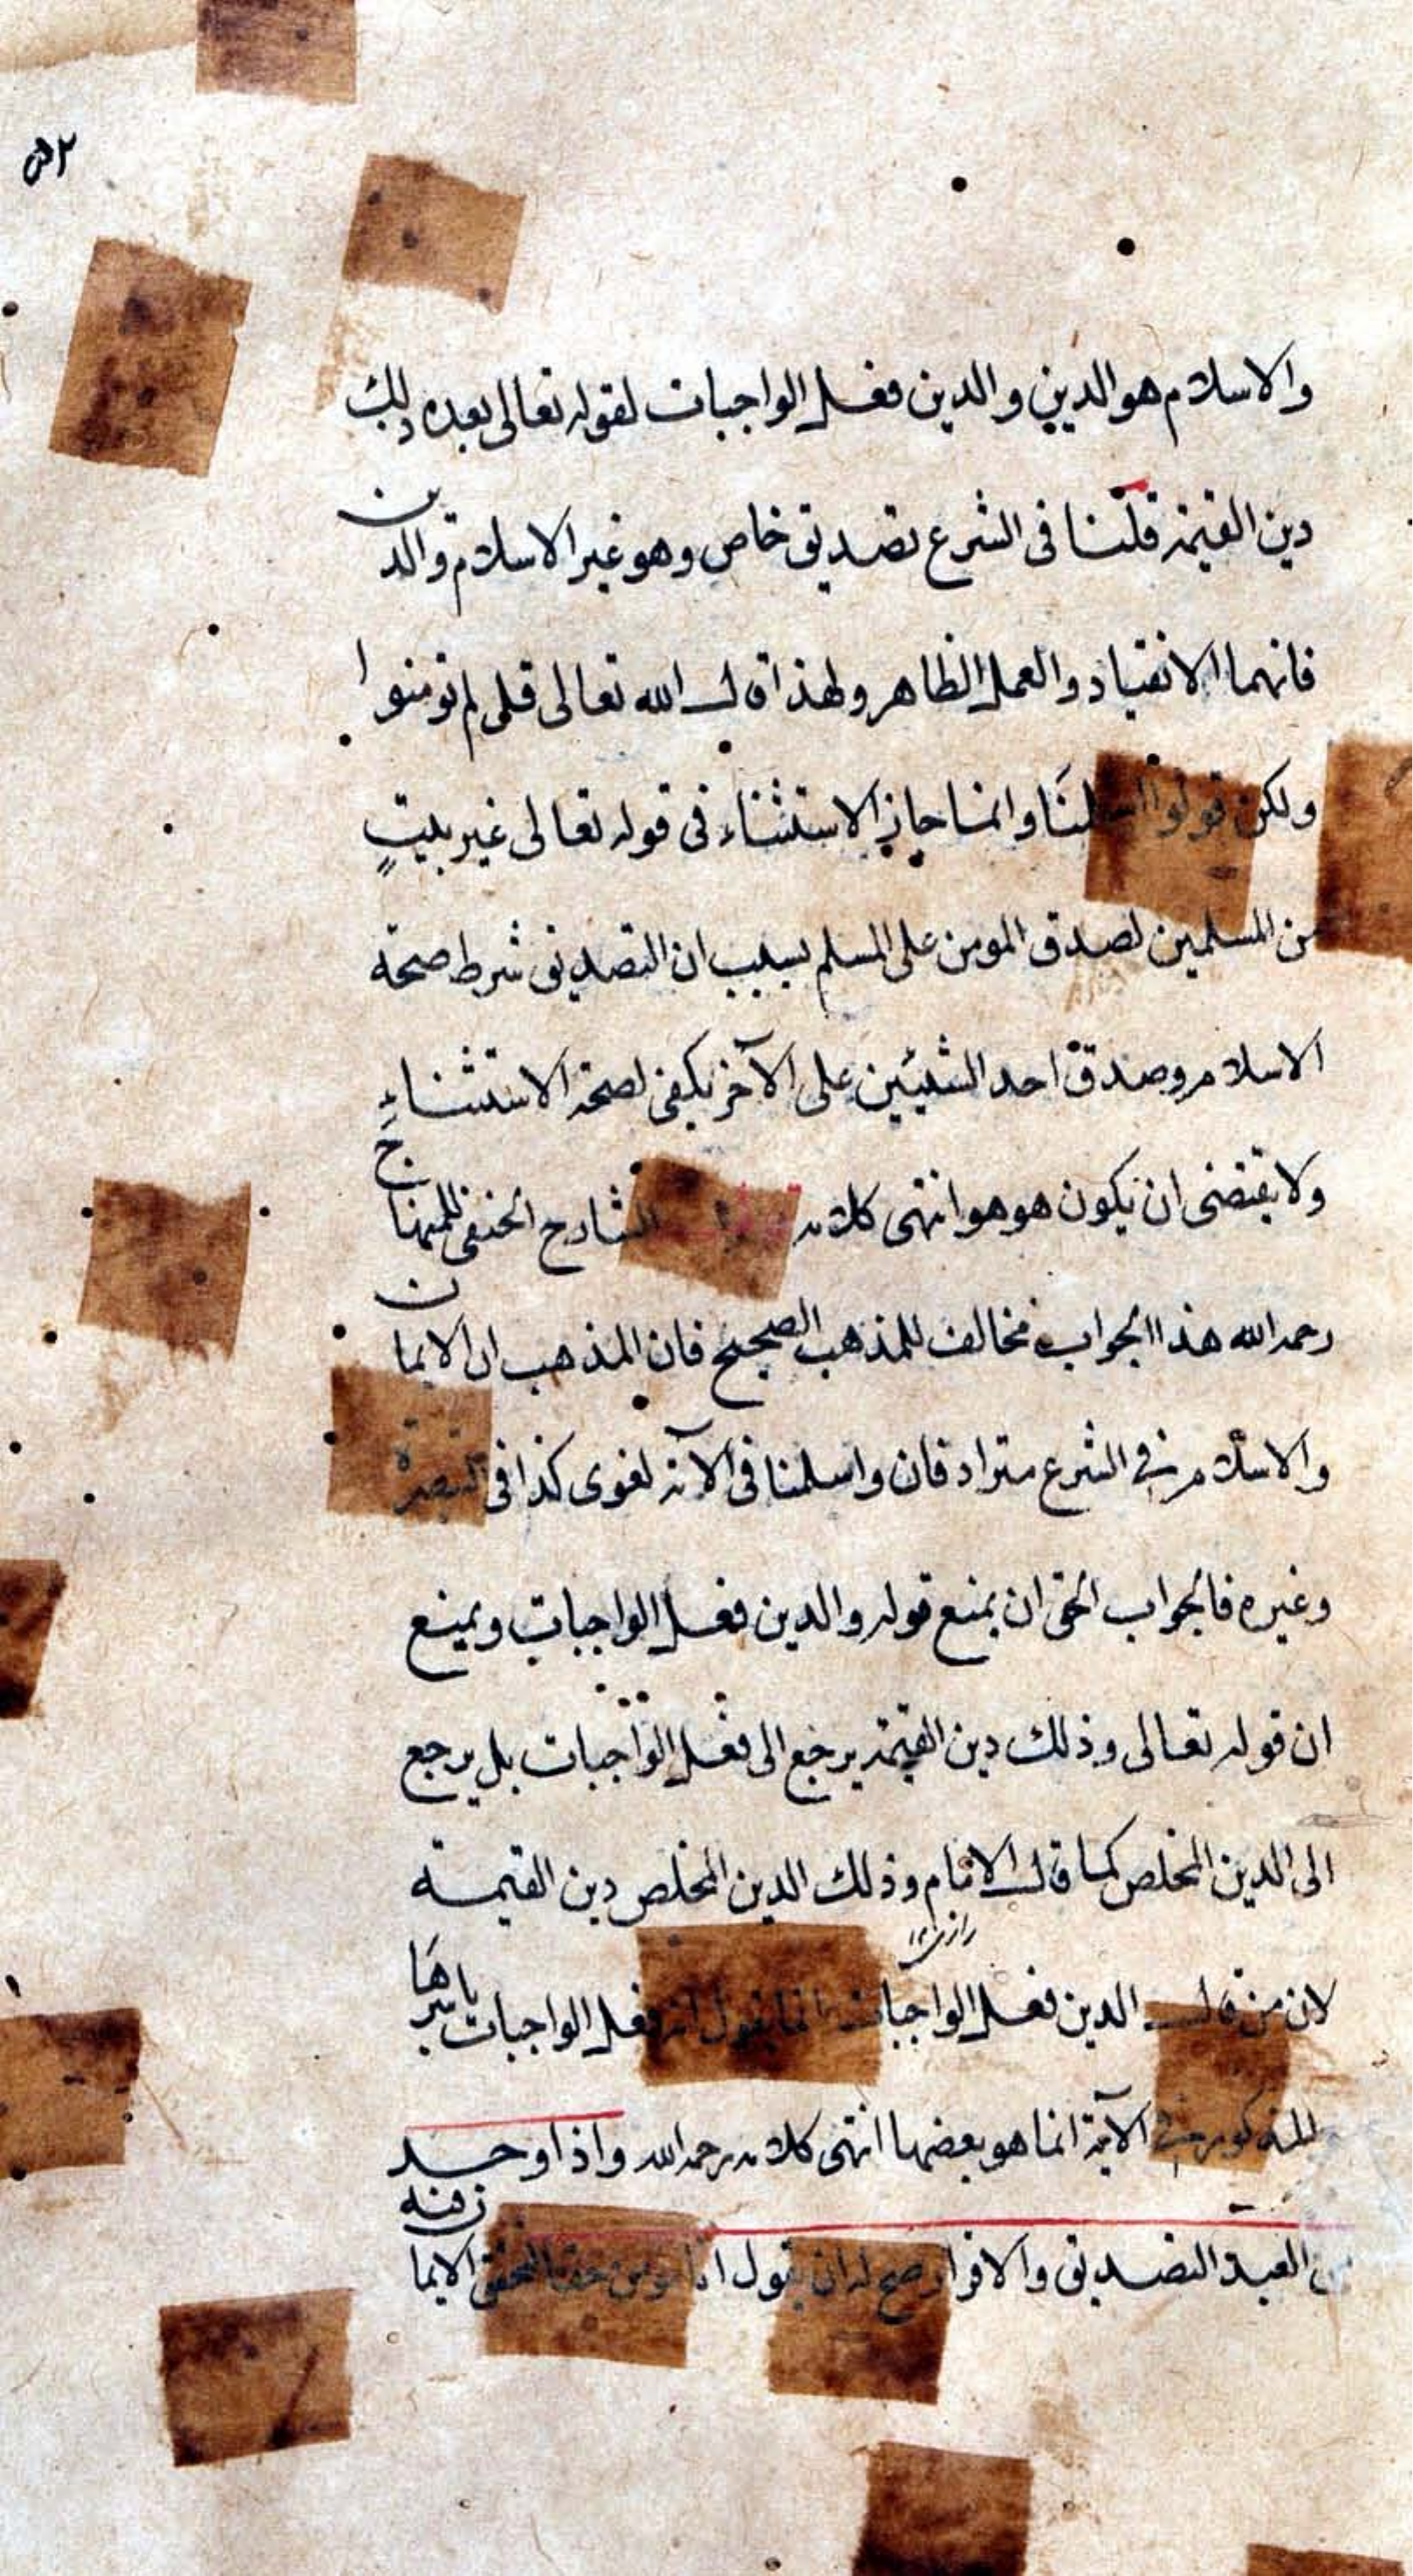 والاسلام هو الدين والدين فعل الواجبات لقوله تعالى بعده ذلك
دين القيمة قلنا فى الشرع تصديق خاص وهو غير الاسلام والدين
فانهما الانقياد والعمل الظاهر ولهذا قال الله تعالى قل لم تومنوا
ولكن قولوا اسلمنا وانما جاز الاستثناء فى قوله تعالى غير بيتٍ
من المسلمين لصدق المومن على المسلم بسبب ان التصديق شرط صحة
الاسلام وصدق احد الشيئين على الآخر يكفى لصحة الاستثناء
ولا يقتضى ان يكون هو هو انتهى كلامه الشارح الحنفى للمنهاج
رحمه الله هذا الجواب مخالف للمذهب الصحيح فان المذهب ان الايمان
والاسلام فى الشرع مترادفان واسلمنا فى الآية لغوى كذا فى التبصرة
وغيره فالجواب الحق ان يمنع قوله والدين فعل الواجبات ويمنع
ان قوله تعالى وذلك دين القيمة يرجع الى فعل الواجبات بل يرجع
الى الدين المخلص كما قال الامام وذلك الدين المخلص دين القيمة
رازى ١٢
لان من قال الدين فعل الواجبات انما يقول انه فعل الواجبات باسرها
المذكور فى الآية انما هو بعضها انتهى كلامه رحمه الله واذا وجد
من العبد التصديق والاقرار صح له ان يقول انا مومن حقا لتحقق الايمان فيه